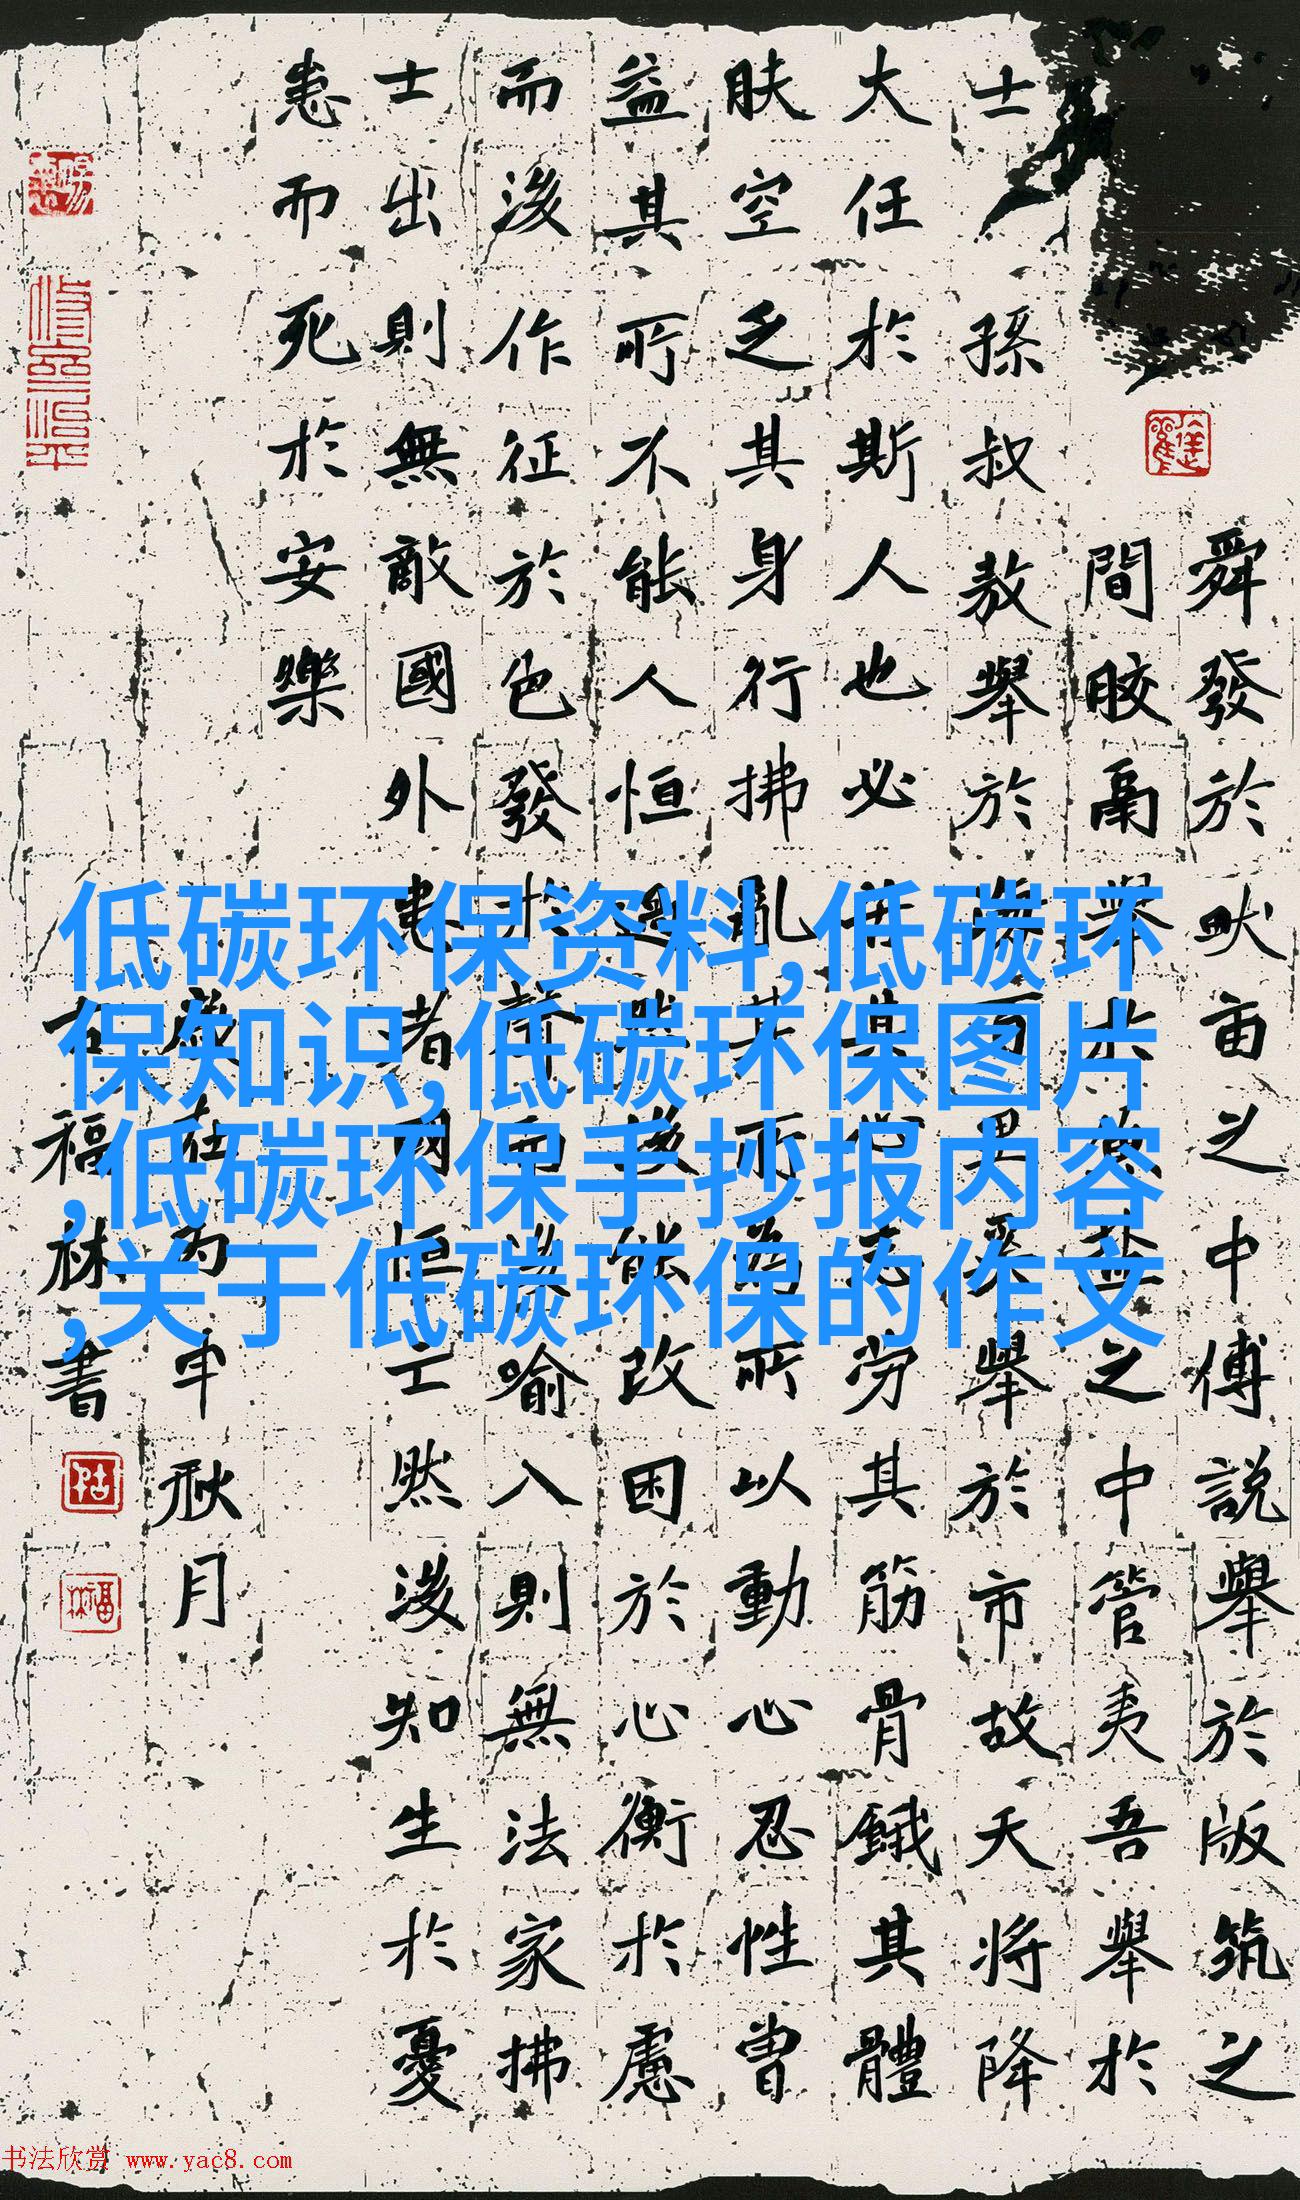 舜發於畎亩之中傅説舉於版筑之
間胶鬲舉於魚盐之中管夷吾舉於
士孫叔敖舉於海百里奚舉於市故天将降
大任於斯人也必苦其心志劳其筋骨餓其體
肤空乏其身行拂亂其所為所以動心忍性曾
益其所不能人恒過然後能改困於心衡於慮
而後作征於色發於聲而後喻入則無法家拂
士出則無敵國外患者國恒亡然後知生於憂
患而死於安樂
歲在丙申秋月
古福林書
低碳环保资料,低碳环
保知识,低碳环保图片
,低碳环保手抄报内容
,关于低碳环保的作文
书法欣赏 www.yac8.com